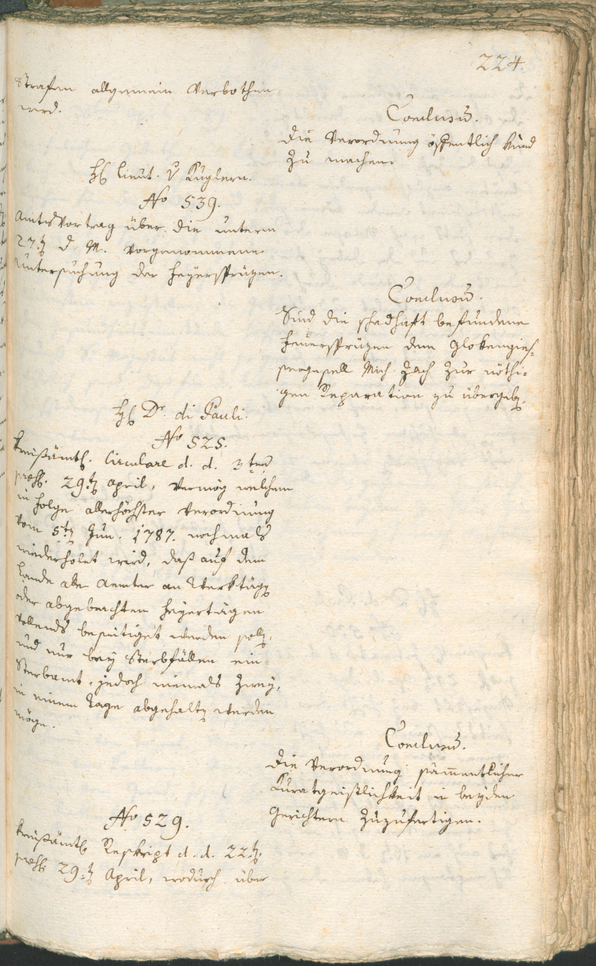 224.
Strafen allgemein verbothen
wird.
Conclusum.
die Verordnung öffentlich kund
zu machen.
H. Lieut. v Kuglern.
No 539.
Amtsvortrag über die unterm
27.t d. M. vorgenommene
Untersuchung der Feyersprüzen.
Conclusum.
Sind die schadhaft befundene
Feuersprüzen dem Glokengies-
sergesell Mich. Zach zur nöthi-
gen Reparation zu übergeben.
H. Dr. di Pauli.
No 525.
Kreisämtl. Circulare d. d.
præs. 29.t April, vermög welchem
in Folge allerhöchster Verordnung
vom 5t Jun. 1787. nochmals
wiederholet wird, daß auf dem
Lande alle Aemter an Werktägen
oder abgebrachten Feyertägen
vollends beseitiget werden sollen,
und nur bey Sterbfällen ein
Sterbamt, jedoch niemals zwey,
in einem Tage abgehalten werden
möge.
Conclusum.
die Verordnung sämmentlicher
Kuratgeistlichkeit in beyden
Gerichtern zuzufertigen.
No 529.
Kreisämtl. Reskript d. d. 22.t,
præs. 29.t April, wodurch über